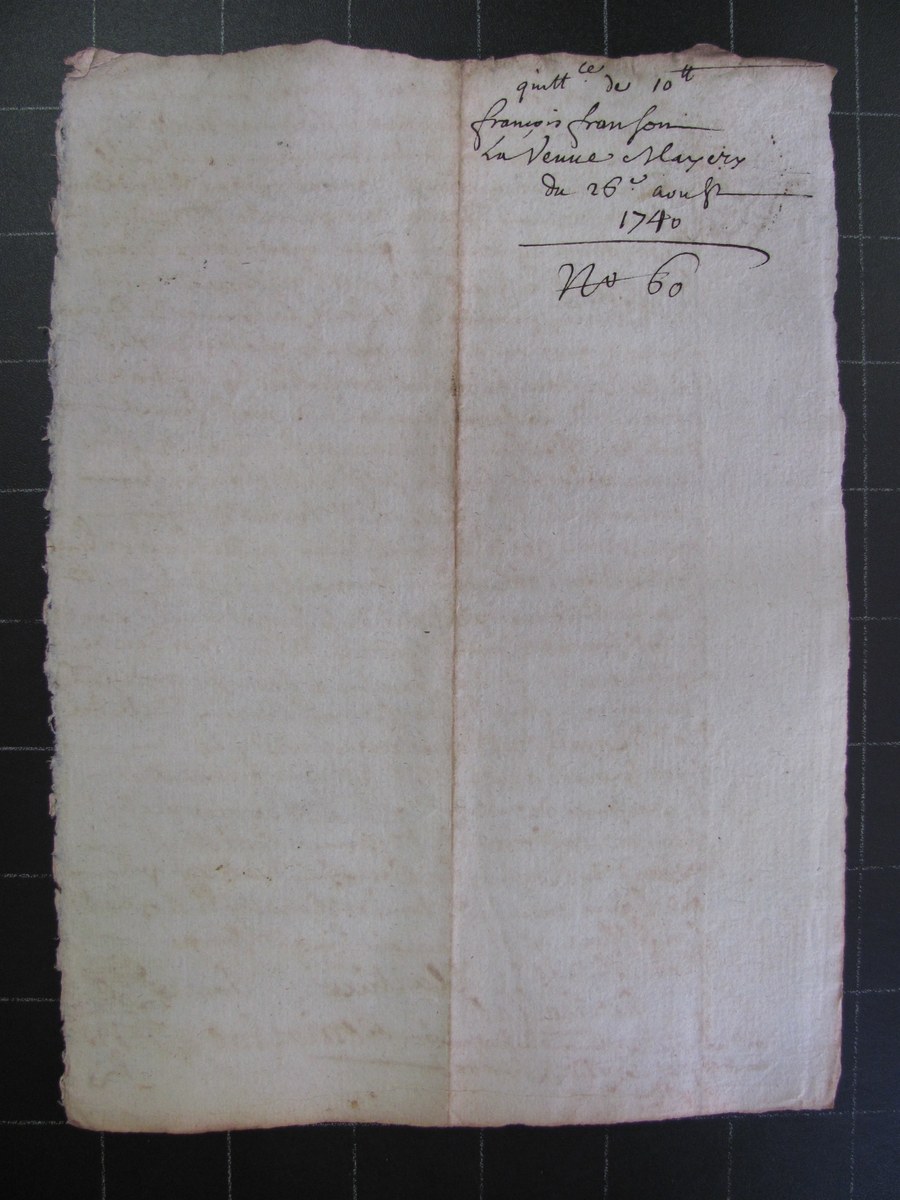 quitt.ce de 10tt
françois franson
La Veuue Mayerx
du 26e aoust
1740
No 60